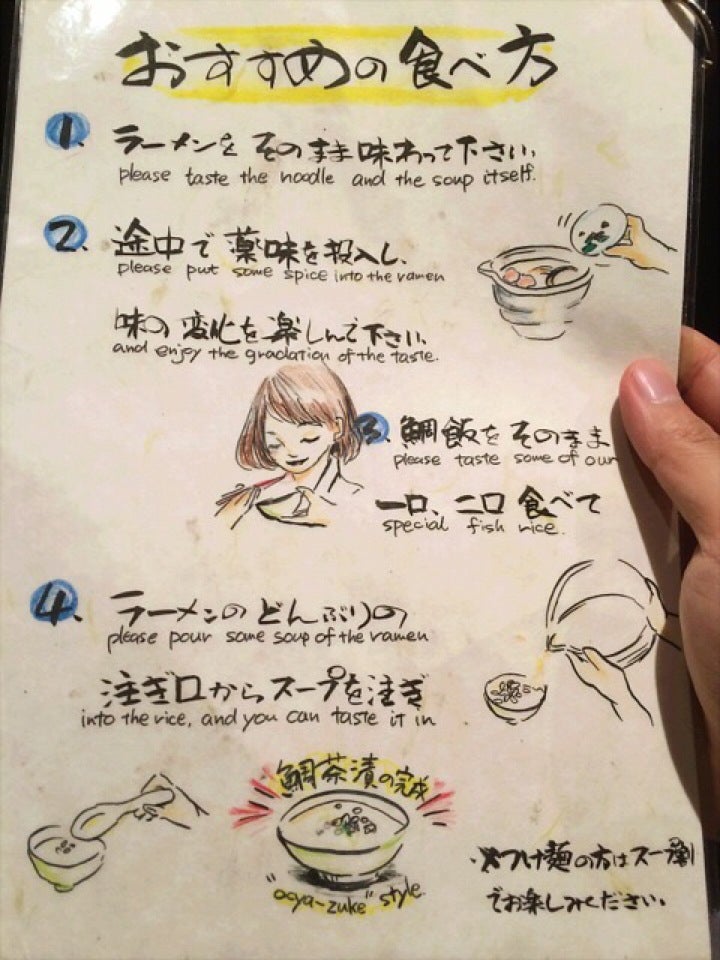 おすすめの食べ方
1. ラーメンを そのまま味わって下さい、
please taste the noodle and the soup itself.
2. 途中で 薬味を投入し、
please put some spice into the ramen
味の 変化を楽しんで下さい、
and enjoy the gradation of the taste.
3. 鯛飯を そのまま
please taste some of our
一口、二口 食べて
special fish rice.
4. ラーメンの どんぶりの
please pour some soup of the ramen
注ぎ口からスープを注ぎ
into the rice, and you can taste it in
鯛茶漬の完成
"ocya-zuke" style.
※つけ麺の方はスープ割
でお楽しみください。